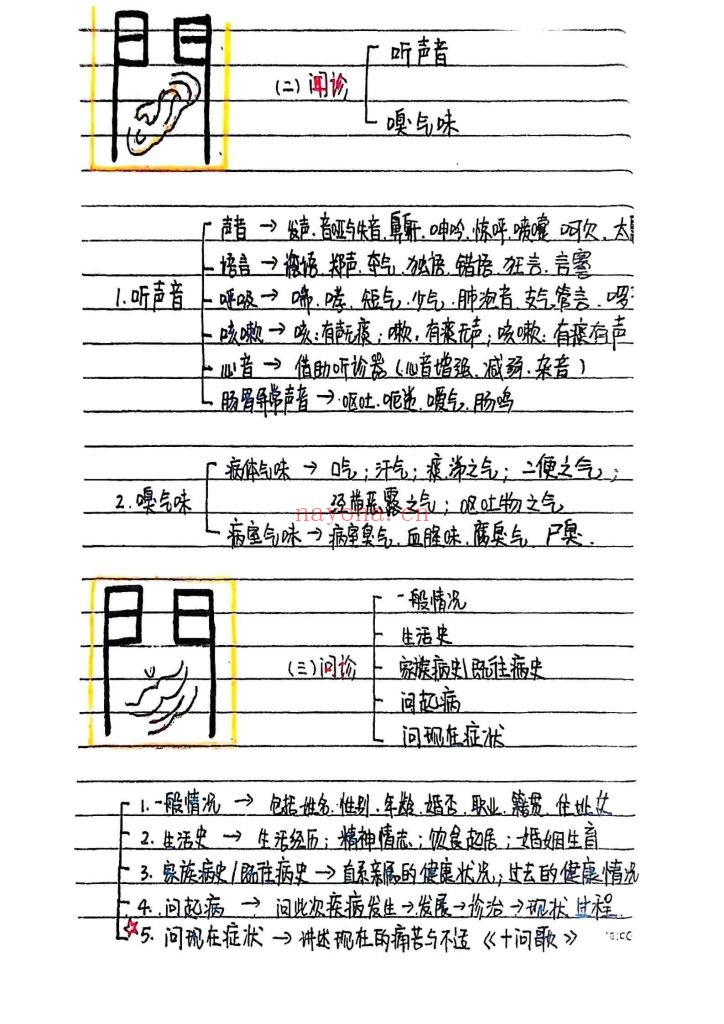 (二) 闻诊
听声音
嗅气味
1.听声音
声音 → 发声.音哑与失音.鼻鼾.呻吟.惊呼.喷嚏.呵欠.太
语言 → 谵语.郑声.夺气.独语.错语.狂言.言謇
呼吸 → 喘.哮.短气.少气.肺泡音.支气管音.啰
咳嗽 → 咳:有声无痰;嗽.有痰无声;咳嗽:有痰有声
心音 → 借助听诊器(心音增强.减弱.杂音)
肠胃异常声音 → 呕吐.呃逆.嗳气.肠鸣
2.嗅气味
病体气味 → 口气;汗气;痰.涕之气;二便之气;
经带恶露之气;呕吐物之气
nayona.cn
病室气味 → 病室臭气.血腥味.腐臭气.尸臭.
(三) 问诊
一般情况
生活史
家族病史/既往病史
问起病
问现在症状
1.一般情况 → 包括姓名.性别.年龄.婚否.职业.籍贯.住址
2.生活史 → 生活经历;精神情志;饮食起居;婚姻生育
3.家族病史/既往病史 → 直系亲属的健康状况;过去的健康情况
4.问起病 → 问此次疾病发生→发展→诊治→现状 过程.
5.问现在症状 → 讲述现在的痛苦与不适《十问歌》